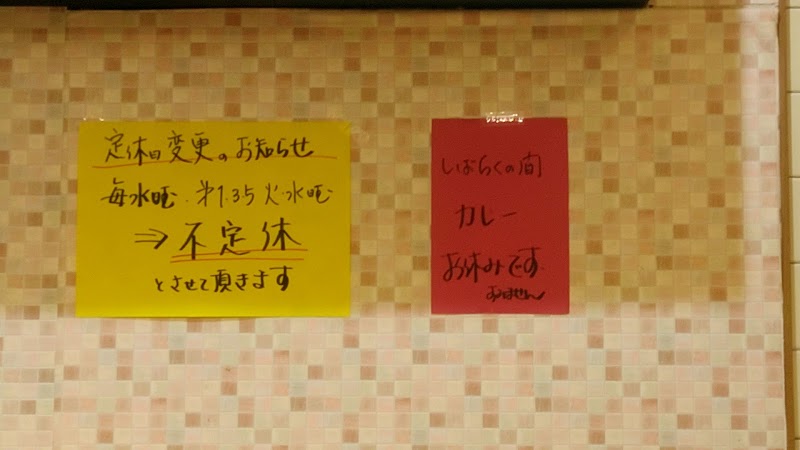 定休日変更のお知らせ
毎水曜、第1.3.5 火.水曜
⇒ 不定休
とさせて頂きます
しばらくの間
カレー
お休みです
すみません